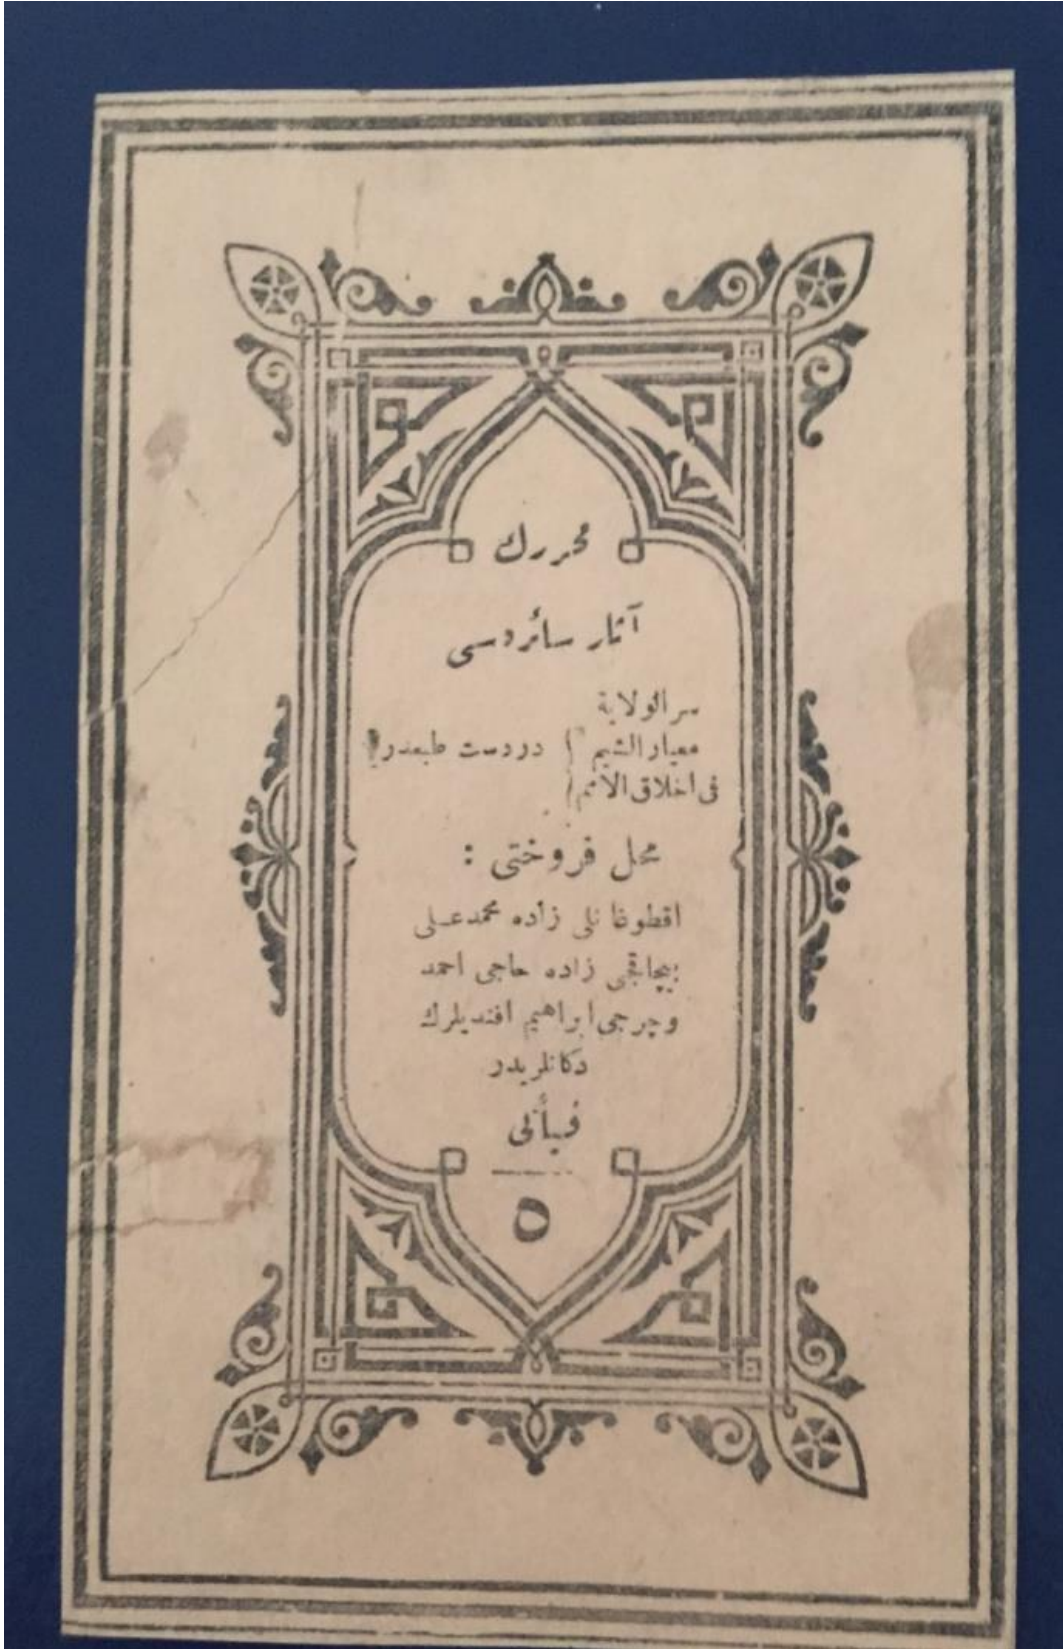 محررك
آثار سائره سی
سر الولایة
معيار الشيم } دردست طبعدر
فی اخلاق الامم
محل فروختی :
اقطوغا نلی زاده محمد علی
بیچاقجی زاده حاجی احمد
وچرجی ابراهیم افندیلرك
دكانلریدر
فیأتی
٥